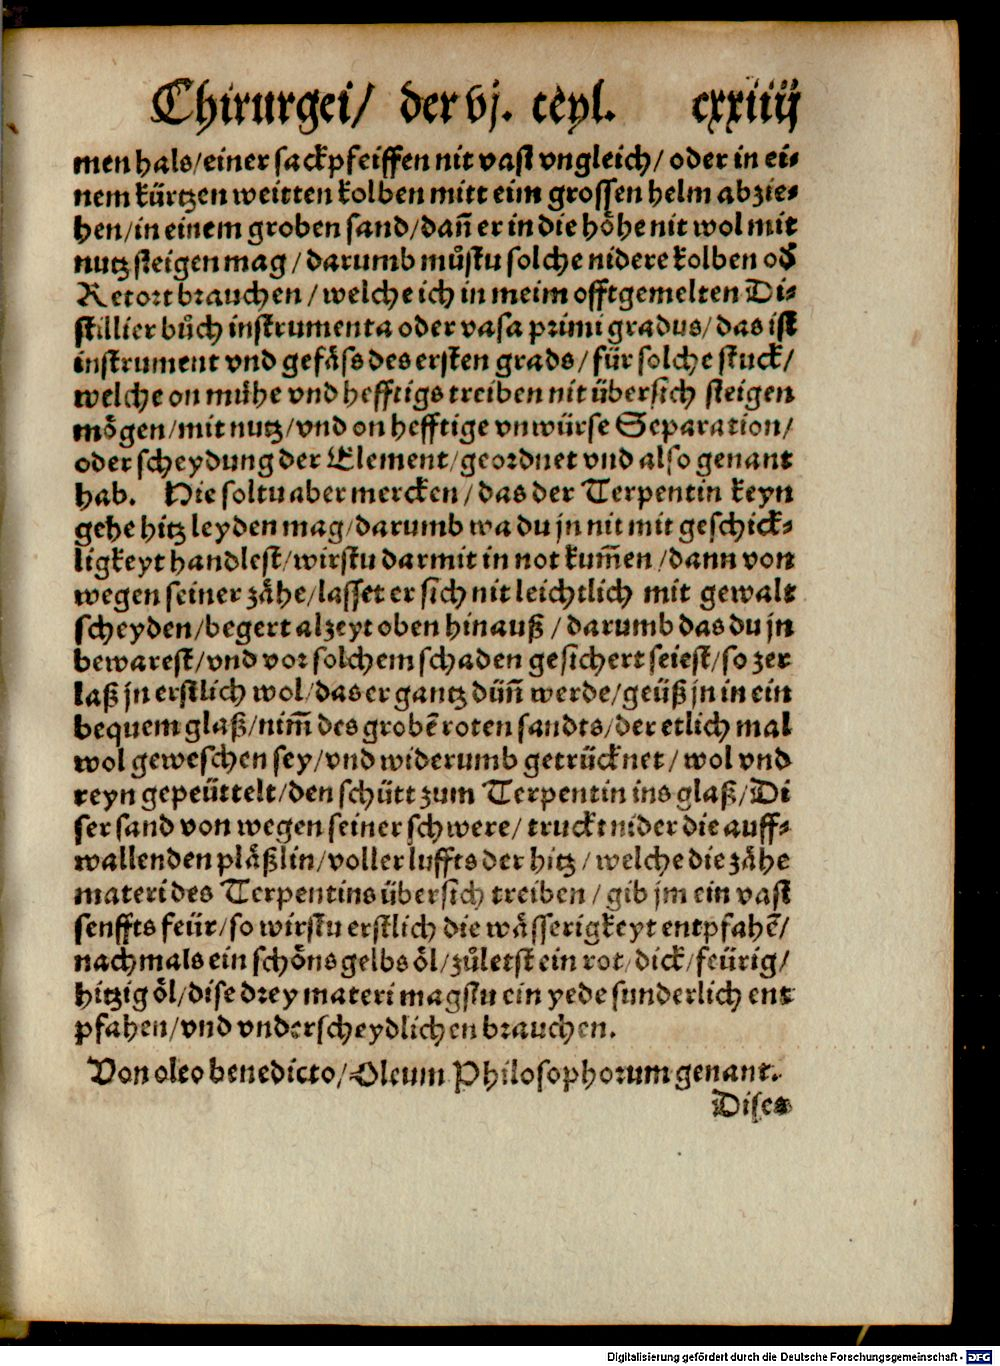 Chirurgei/ der vj. teyl. cxxiiij
men hals/einer sackpfeiffen nit vast vngleich/ oder in ei⸗
nem kürtzen weitten kolben mitt eim grossen helm abzie⸗
hen/in einem groben sand/dañ er in die höhe nit wol mit
nutz steigen mag/darumb můstu solche nidere kolben oď
Retort brauchen/welche ich in meim offtgemelten Di⸗
stillier bůch instrumenta oder vasa primi gradus/das ist
instrument vnd gefäss des ersten grads/für solche stuck/
welche on mühe vnd hefftigs treiben nit übersich steigen
mögen/mit nutz/vnd on hefftige vnwürse Separation/
oder scheydung der Element/geordnet vnd also genant
hab. Hie soltu aber mercken/das der Terpentin keyn
gehe hitz leyden mag/darumb wa du jn nit mit geschick⸗
ligkeyt handlest/wirstu darmit in not kum̃en/dann von
wegen seiner zähe/lasset er sich nit leichtlich mit gewalt
scheyden/begert alzeyt oben hinauß/darumb das du jn
bewarest/vnd vor solchem schaden gesichert seiest/so zer
laß jn erstlich wol/das er gantz düñ werde/geüß jn in ein
bequem glaß/nim̃ des grobẽ roten sandts/der etlich mal
wol geweschen sey/vnd widerumb getrücknet/wol vnd
reyn gepeüttelt/den schütt zum Terpentin ins glaß/Di
ser sand von wegen seiner schwere/truckt nider die auff⸗
wallenden pläßlin/voller luffts der hitz/welche die zähe
materi des Terpentins übersich treiben/gib jm ein vast
senffts feür/so wirstu erstlich die wässerigkeyt entpfahẽ/
nachmals ein schöns gelbs öl/zůletst ein rot/dick/feürig/
hitzig öl/dise drey materi magstu ein yede sunderlich ent
pfahen/vnd vnderscheydlichen brauchen.
Von oleo benedicto/Oleum Philosophorum genant.
Dises
Digitalisierung gefördert durch die Deutsche Forschungsgemeinschaft - DFG